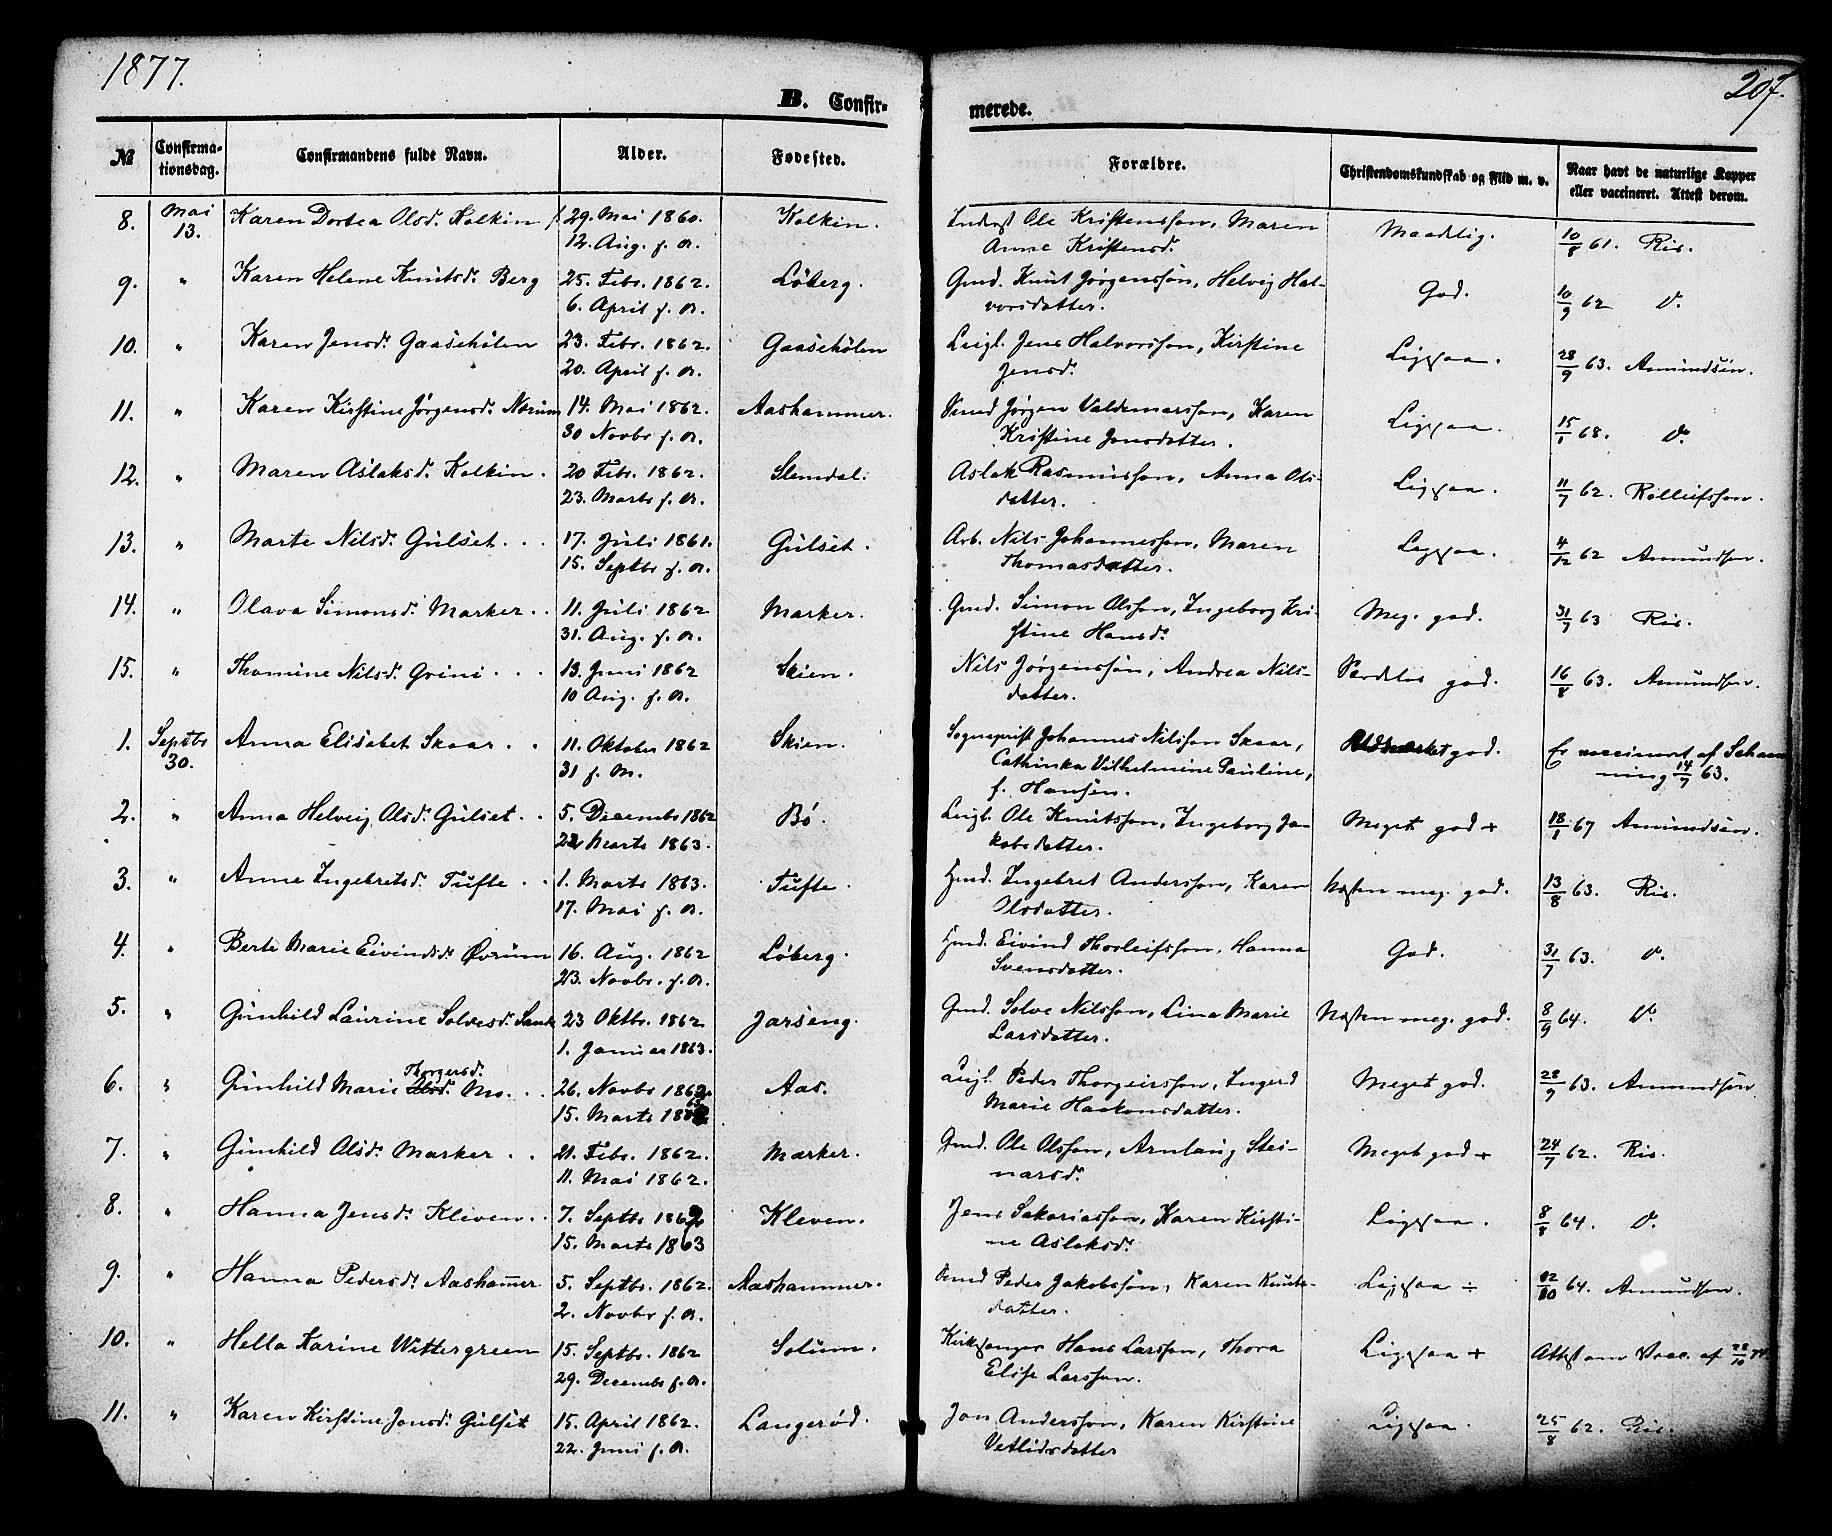 1877.
207.
B. Confir-
merede.
№
Confirma-
tionsdag.
Confirmandens fulde Navn.
Alder.
Fødested.
Forældre.
Christendomskundskab og Flid m. v.
Naar havt de naturlige Kopper
eller vaccineret. Attest derom.
8. Mai 13. Karen Dortea Olsd. Kolkin 29. Mai 1860. Kolkin. Inderst Ole Kristensson, Maren Maadelig. 10/8 61. Ris.
12. Aug. s. A. Anne Kristensd.
9. " Karen Helene Knutsd. Berg 25. Febr. 1862. Løberg. Gmd. Knut Jørgensson, Helvig Hal- God. 10/9 62 d.
6. April s. A. vorsdatter.
10. " Karen Jensd. Gaasehölen 23. Febr. 1862. Gaasehölen Leigl. Jens Halvorsson, Kirstine Ligesaa. 28/9 63. Amundsen.
20. April s. A. Jensd.
11. " Karen Kirstine Jørgensd. Norum 14. Mai 1862. Aashammer. Smed Jørgen Valdemarsson, Karen Ligesaa. 15/1 68. d.
30 Novbr s. A. Kristine Jonsdatter.
12. " Maren Aslaksd. Kolkin. 20 Febr. 1862. Slemdal. Aslak Rasmusson, Anna Ols- Ligesaa. 11/7 62. Rolleifsson.
23. Marts s. A. datter.
13. " Marte Nilsd. Gulset. . . 17. Juli 1861. Gulset. Arb. Nils Johannesson, Maren Ligesaa. 4/12 62 Amundsen.
15. Septbr s. A. Thomasdatter.
14. " Olava Simonsd. Marker. . 11. Juli 1862 Marker. Gmd. Simon Olsson, Ingeborg Kri- Meg. god. 31/7 63 Ris.
31. Aug. s. A. stine Hansd.
15. " Thomine Nilsd. Grini. . . 13. Juni 1862 Skien. Nils Jørgensson, Andrea Nils- Særdeles god. 16/8 63. Amundsen.
10 Aug. s. A. datter.
1. Septbr 30. Anna Elisabet Skaar. . 11. Oktober 1862 Skien. Sogneprest Johannes Nilsson Skaar, god. Er vaccineret af Scham-
31 s. M. Cathinka Vilhelmine Pauline, ning 14/7 63.
f. Hansen.
2. " Anna Helvig Olsd. Gulset. . 5. Decembr 1862 Bö. Leigl. Ole Knutsson, Ingeborg Ja- Meget god + 18/1 67 Amundsen.
22 Marts 1863. kobsdatter.
3. " Anne Ingebretsd. Tufte. . 1. Marts 1863. Tufte. Hmd. Ingebret Andersson, Karen Næsten meg. god. 13/8 63. Ris.
17. Mai s. A. Olsdatter.
4. " Berte Marie Eivindsd. Øvrum 16. Aug. 1862 Løberg. Hmd. Eivind Thorleifsson, Hanna God. 31/7 63. d.
23. Novbr. s. A. Svensdatter.
5. " Gunhild Laurine Solvesd. 23 Oktbr. 1862 Jarseng. Gmd. Solve Nilsson, Lina Marie Næsten meg. god. 8/9 64. d.
1. Januar 1863. Larsdatter.
Thorgersd.
6. " Gunhild Marie Olsd. Mo. . . 26. Novbr 1862 Aas. Leigl. Peder Thorgeirsson, Ingerd Meget god. 28/9 63. Amundsen
15. Marts 1863 Marie Haakonsdatter.
7. " Gunhild Olsd. Marker. . 21. Febr. 1862. Marker. Gmd. Ole Olsson, Arnlaug Stei- Meget god + 24/7 62. Ris.
11. Mai 1862. narsd.
8. " Hanna Jensd. Kleven. . 7. Septbr 1862 Kleven. Jens Sakariasson, Karen Kirsti- Ligesaa. 8/8 64. d.
15. Marts 1863 ne Aslaksd.
9. " Hanna Pedersd. Aashamer 5. Septbr. 1862. Aashammer. Smed Peder Jakobsson, Karen Knuts- Ligesaa ÷ 64. Amundsen.
2. Novbr s. A. datter.
10. " Hella Karine Wittergreen 15. Septbr. 1862 Solum. Kirkesanger Hans Larssen, Thora Ligesaa + Attest om Vacc. af
29. Decembr s. A. Elise Larsson.
11. " Karen Kirstine Jonsd. Gulset 15. April 1862. Langerød. Jon Andersson, Karen Kirstine Ligesaa. 25/8 62. Ris.
22. Juni s. A. Vetlidsdatter